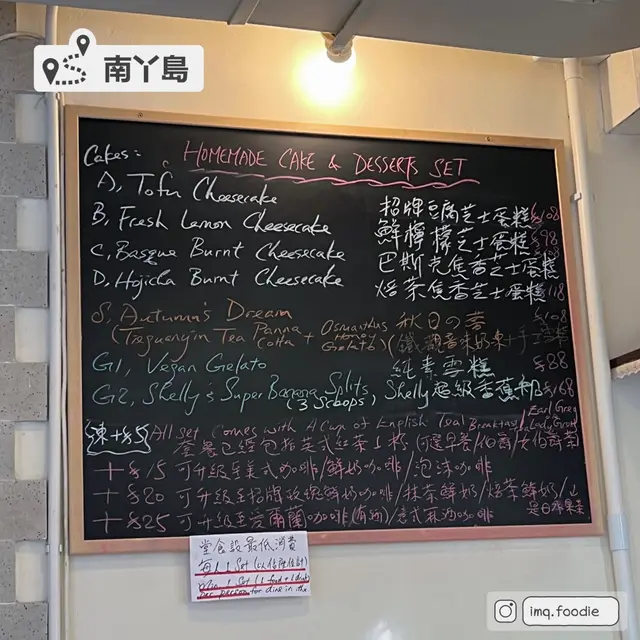 南丫島
HOMEMADE CAKE & DESSERTS SET
Cakes:
A, Tofu Cheesecake 招牌豆腐芝士蛋糕 $108
B, Fresh Lemon Cheesecake 鮮檸檬芝士蛋糕 $98
C, Basque Burnt Cheesecake 巴斯克焦香芝士蛋糕
D, Hojicha Burnt Cheesecake 焙茶焦香芝士蛋糕 118
S, Autumn's Dream 秋日の夢 $108
(Tieguanyin Tea Panna Cotta + Osmanthus Honey Gelato) (鐵觀音茶奶凍+手工
G1, Vegan Gelato 純素雪糕 $88
G2, Shelly's Super Banana Splits, Shelly超級香蕉船 $168
(3 Scoops)
凍+$5 All set comes with A Cup of English Tea (Breakfast/Earl Grey/Lady Grey)
套餐已經包括英式紅茶1杯 (可選早餐/伯爵/女伯爵茶)
+$15 可升級至美式咖啡/鮮奶咖啡/泡沫咖啡
+$20 可升級至招牌玫瑰鮮奶咖啡/抹茶鮮奶/焙茶鮮奶/
是日蘋果茶
+$25 可升級至愛爾蘭咖啡(有酒)/意式
堂食設最低消費
每人1 Set (以位計)
Min 1 Set (1 food + 1 drink)
per person for dine in
imq.foodie